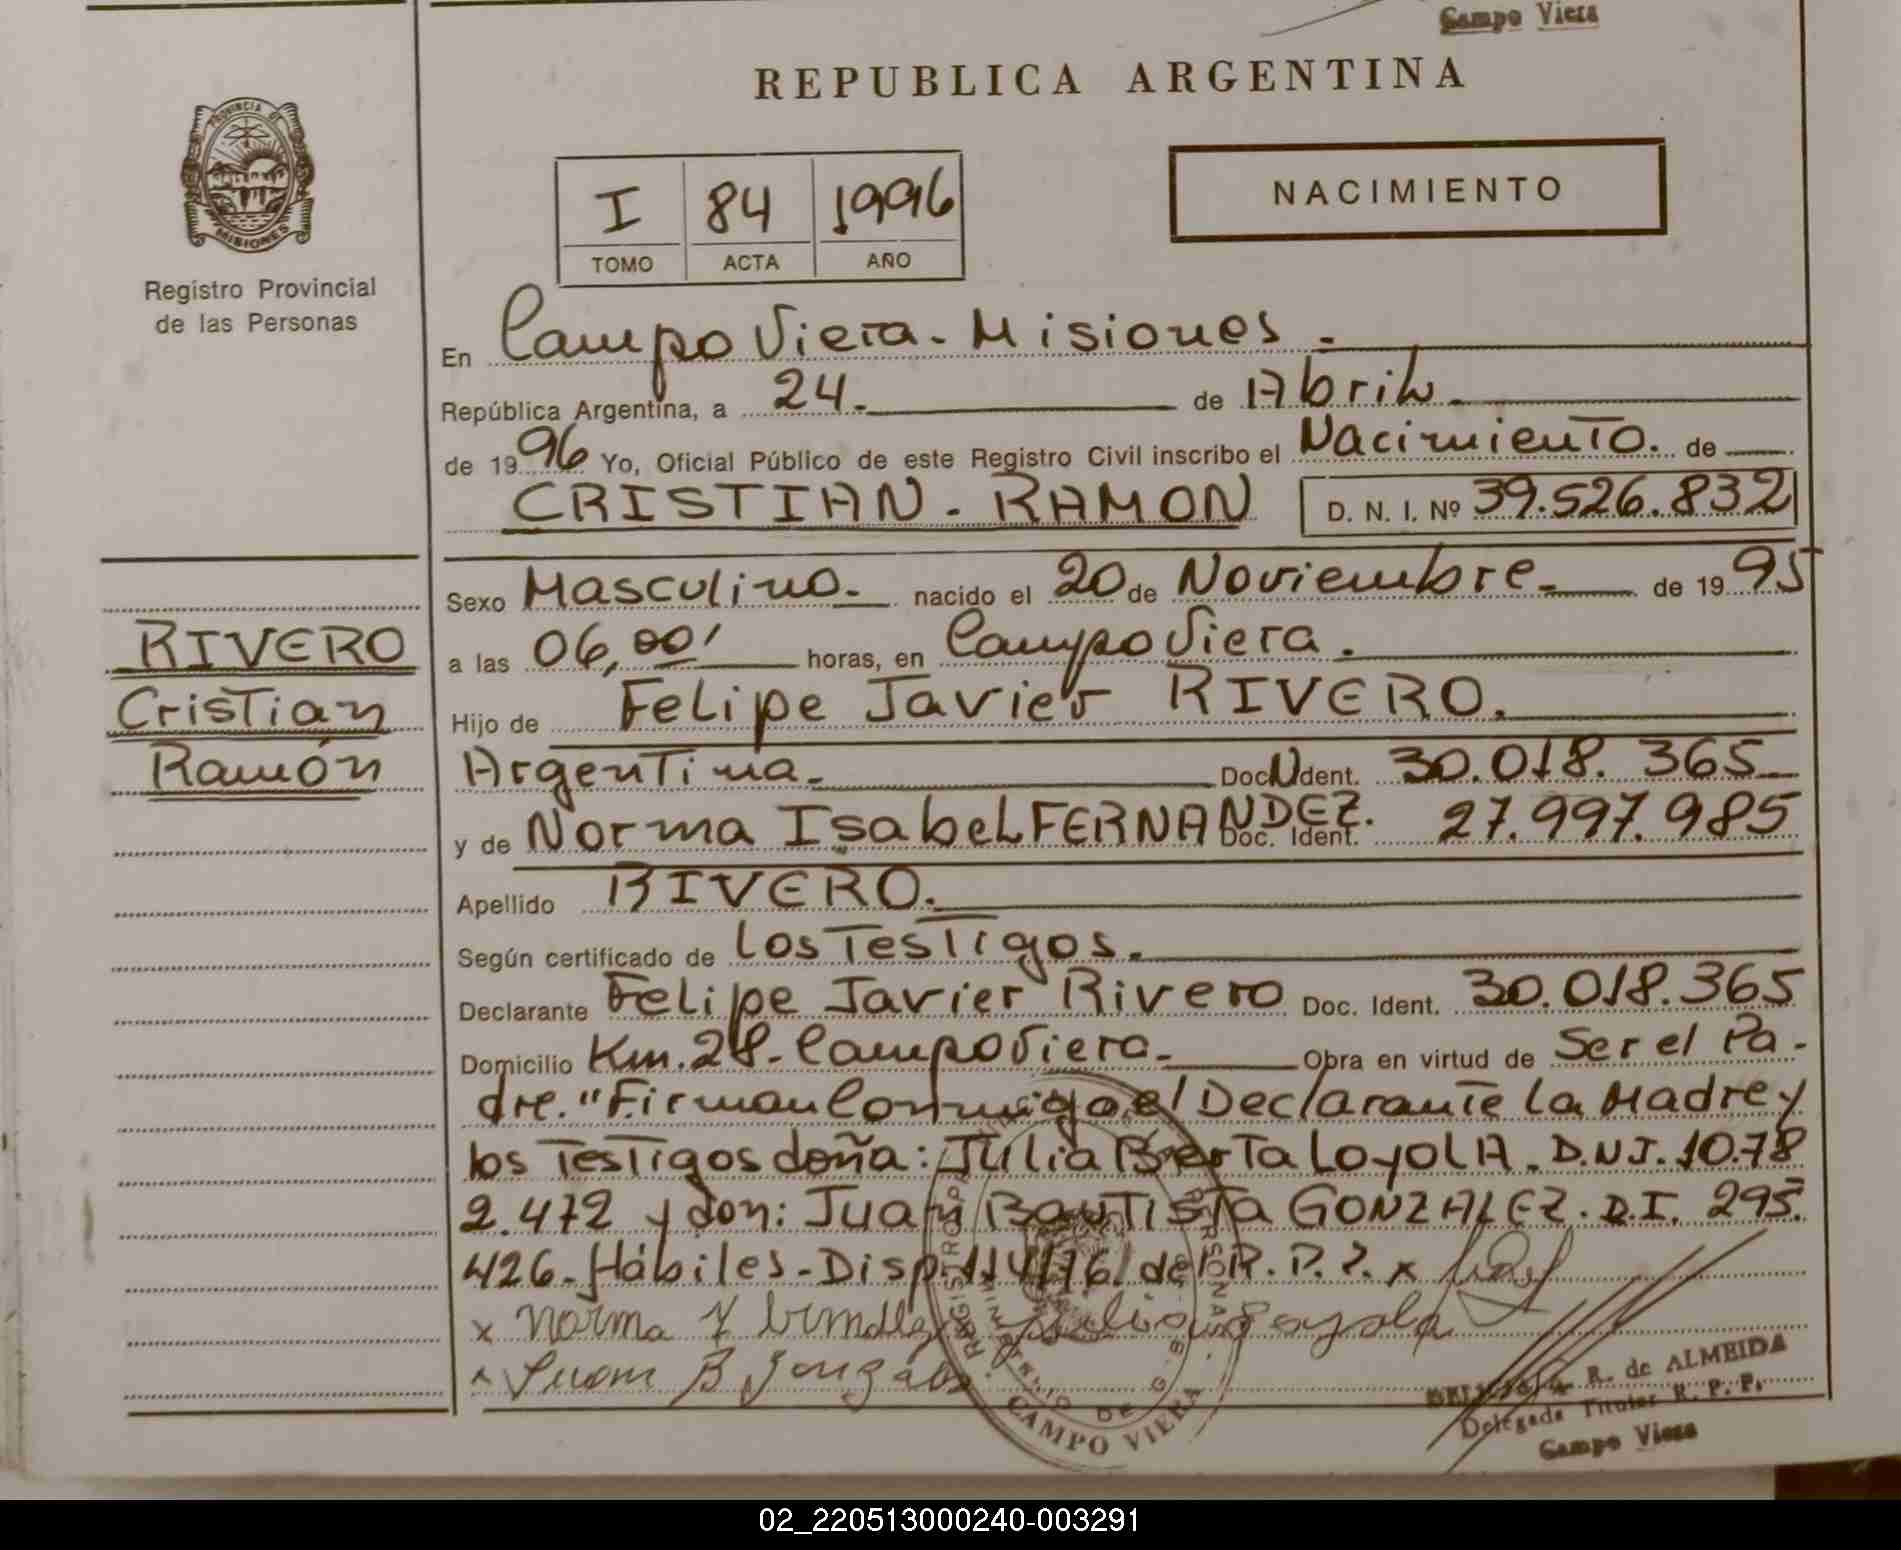 Campo Viera
REPUBLICA ARGENTINA
PROVINCIA DE
MISIONES
Registro Provincial
de las Personas
I 84 1996
TOMO ACTA AÑO
NACIMIENTO
En Campo Viera - Misiones.
República Argentina, a 24. de Abril
de 1996 Yo, Oficial Público de este Registro Civil inscribo el Nacimiento. de
CRISTIAN - RAMON D. N. I. Nº 39.526.832
Sexo Masculino. nacido el 20 de Noviembre. de 1995
RIVERO
Cristian
Ramón
a las 06,00' horas, en Campo Viera.
Hijo de Felipe Javier RIVERO.
Argentina. Doc. Ident. 30.018.365
y de Norma Isabel FERNANDEZ. Doc. Ident. 27.997.985
Apellido RIVERO.
Según certificado de los Testigos.
Declarante Felipe Javier Rivero Doc. Ident. 30.018.365
Domicilio Km. 28 - Campo Viera. Obra en virtud de Ser el Pa-
dre. "Firman Conmigo el Declarante la Madre y
los Testigos doña: Julia Berta LoyolA. D.N.I. 10.78
2.472 y don: Juan Bautista GONZALEZ. D.I. 295.
426 - Hábiles - Disp. 114/76/ del R. P. P. x
x Norma
x Juan B Gonzalez
REGISTRO PERSONAS
CAMPO VIERA
R. de ALMEIDA
Delegada Titular R. P. P.
Campo Viera
02_220513000240-003291